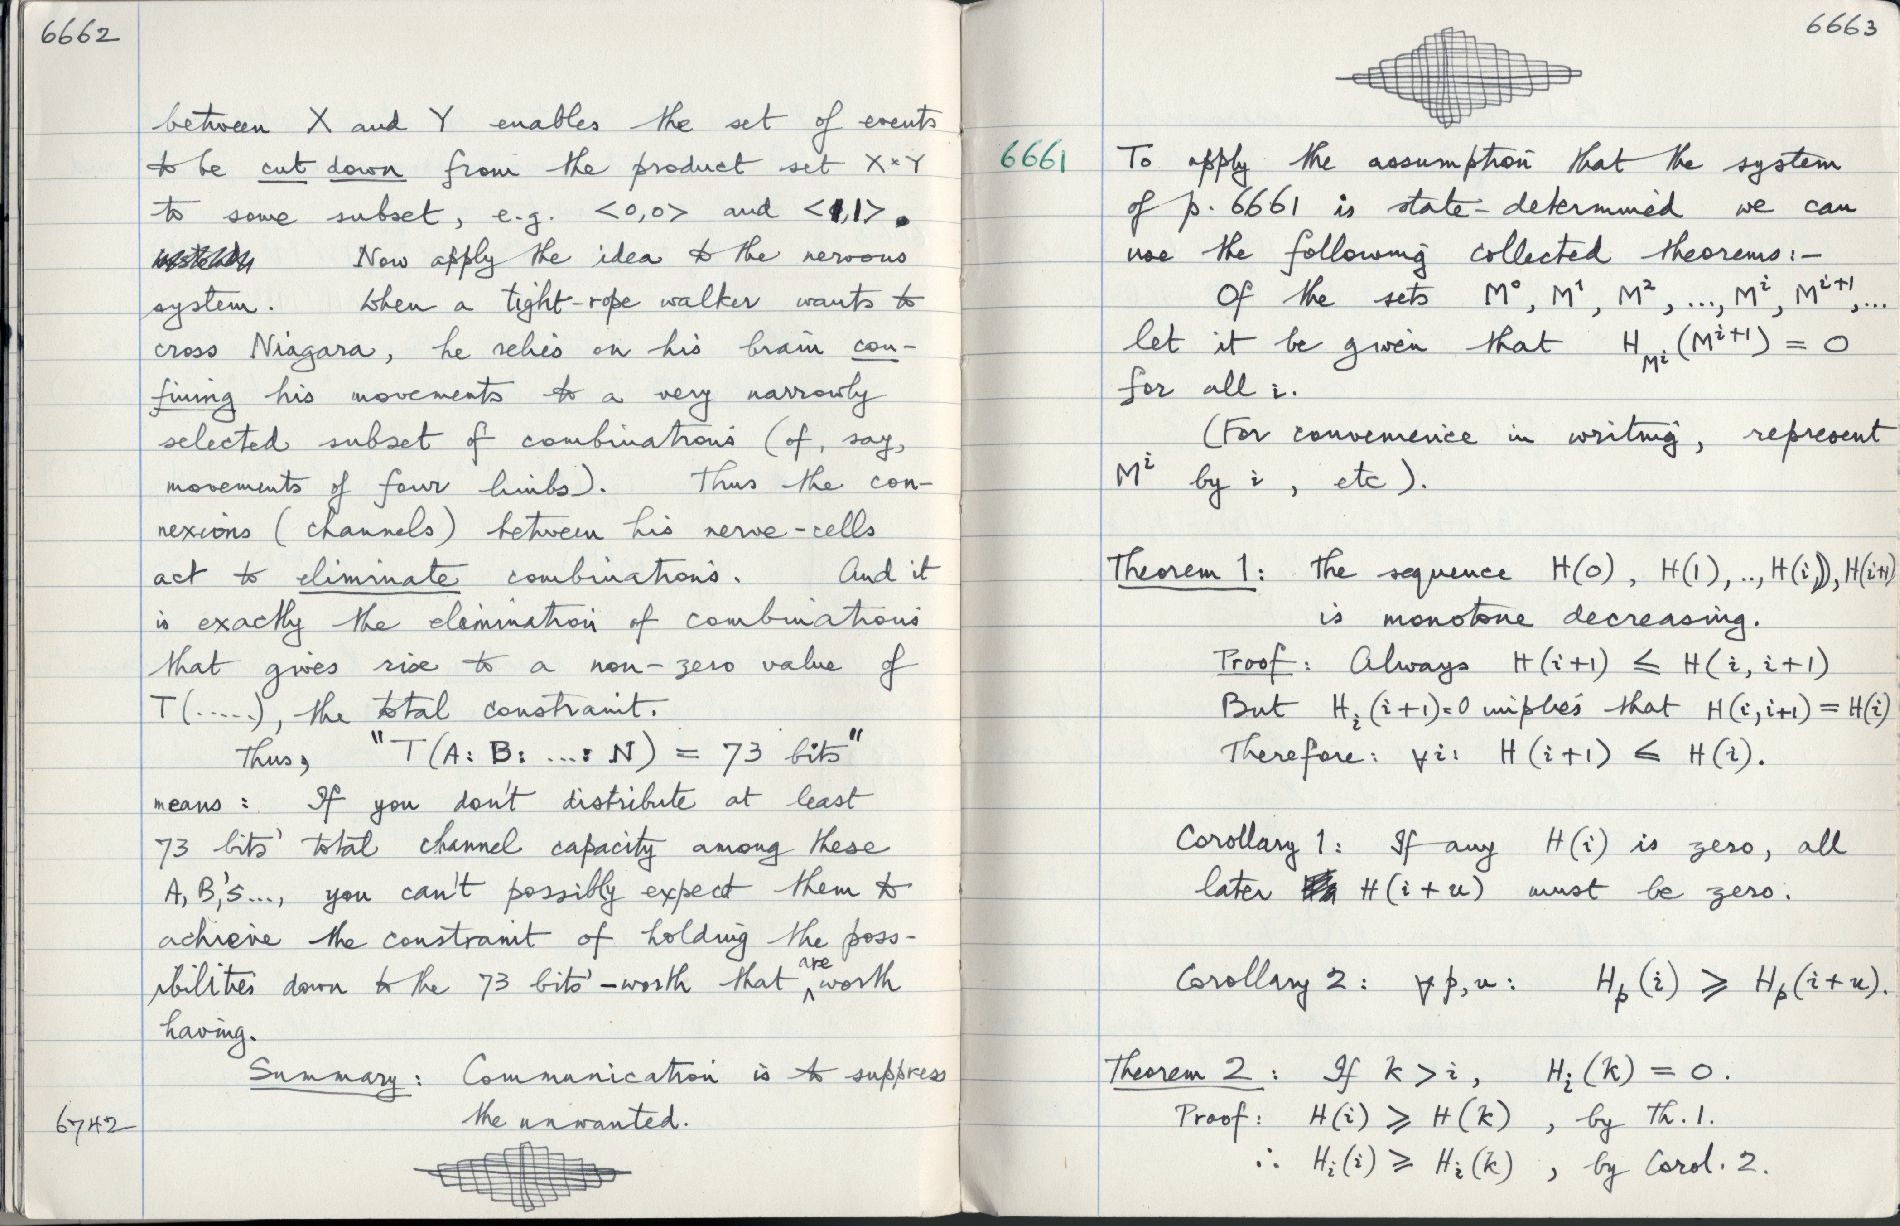 6662
between X and Y enables the set of events
to be cut down from the product set X×Y
to some subset, e.g. <0,0> and <1,1>.
Now apply the idea to the nervous
system. When a tight-rope walker wants to
cross Niagara, he relies on his brain con-
fining his movements to a very narrowly
selected subset of combinations (of, say,
movements of four limbs). Thus the con-
nexions (channels) between his nerve-cells
act to eliminate combinations. And it
is exactly the elimination of combinations
that gives rise to a non-zero value of
T(.....), the total constraint.
Thus, "T(A: B: ...: N) = 73 bits"
means: If you don't distribute at least
73 bits' total channel capacity among these
A, B,'s..., you can't possibly expect them to
achieve the constraint of holding the poss-
ibilities down to the 73 bits'-worth that are worth
having.
Summary: Communication is to suppress
the unwanted.
6742
6663
6661
To apply the assumption that the system
of p. 6661 is state-determined we can
use the following collected theorems:-
Of the sets M⁰, M¹, M², ..., Mⁱ, Mⁱ⁺¹, ...
let it be given that H_Mⁱ(Mⁱ⁺¹) = 0
for all i.
(For convenience in writing, represent
Mⁱ by i, etc).
Theorem 1: The sequence H(0), H(1), .., H(i), H(i+1)
is monotone decreasing.
Proof: Always H(i+1) ≤ H(i, i+1)
But Hᵢ(i+1)=0 implies that H(i,i+1) = H(i)
Therefore: ∀i: H(i+1) ≤ H(i).
Corollary 1: If any H(i) is zero, all
later H(i+u) must be zero.
Corollary 2: ∀p,u: Hₚ(i) ⩾ Hₚ(i+u).
Theorem 2: If k > i, Hᵢ(k) = 0.
Proof: H(i) ⩾ H(k), by Th. 1.
∴ Hᵢ(i) ⩾ Hᵢ(k), by Corol. 2.